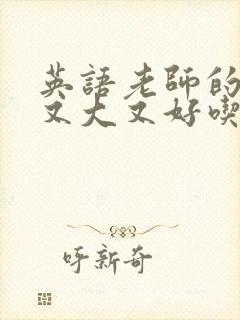 英語老師的
又大又好喫
呀新奇